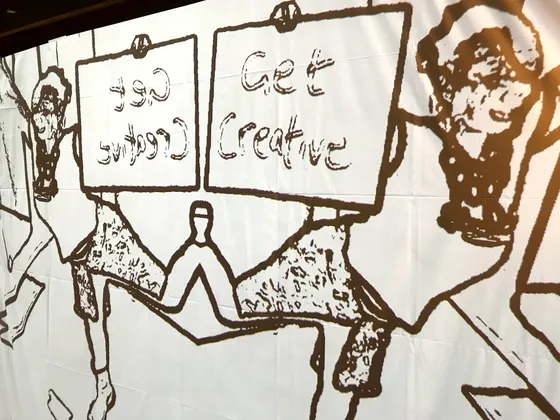 Get
Creative
Get
Creative